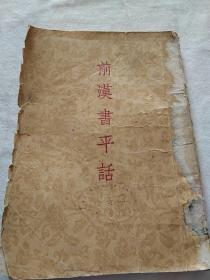 前漢書平話